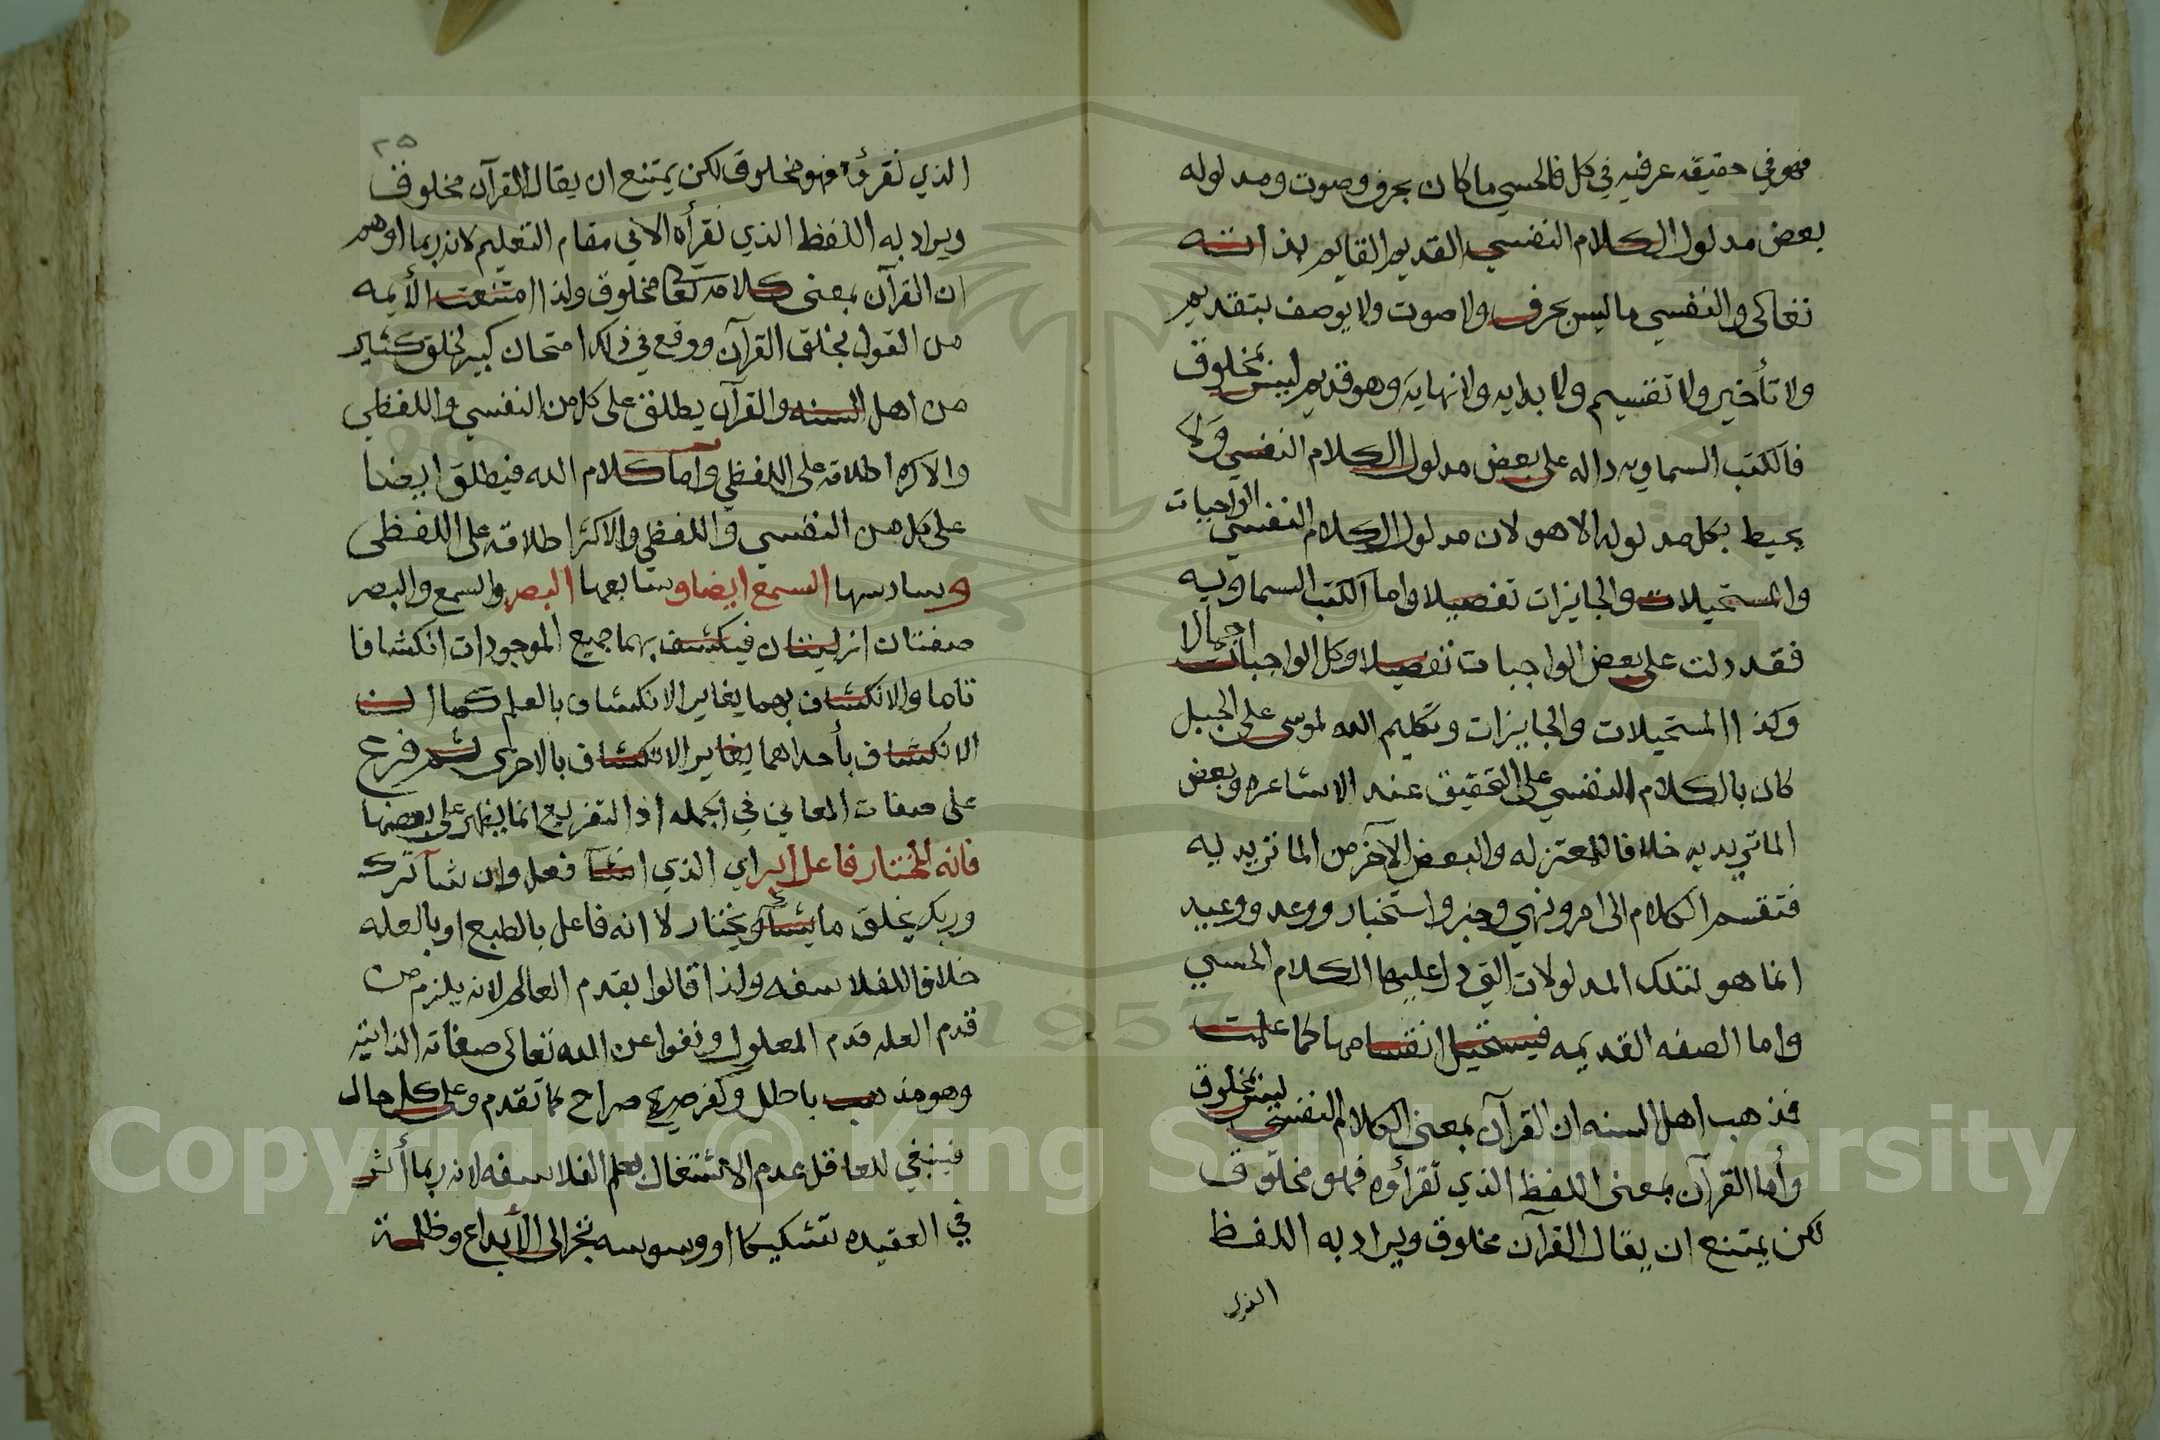 فهو في حقيقه عرفيه في كل فالحسي ما كان بحرف وصوت ومدلوله
بعض مدلول الكلام النفسي القديم القايم بذاته
تعالى والنفسي ما ليس بحرف ولا صوت ولا يوصف بتقديم
ولا تأخير ولا تقسيم ولا بدايه ولا نهاية وهو قديم ليس بمخلوق
فالكتب السماويه داله على بعض مدلول الكلام النفسي ولا
يحيط بكل مدلوله الا هو لان مدلول الكلام النفسي الواجبات
والمستحيلات والجايزات تفصيلا واما الكتب السماويه
فقد دلت على بعض الواجبات تفصيلا وكل الواجبات اجمالا
وكذا المستحيلات والجايزات وتكليم الله لموسى على الجبل
كان بالكلام النفسي على التحقيق عند الاشاعره وبعض
الماتريديه خلافا للمعتزله والبعض الآخر من الماتريديه
فتقسم الكلام الى امر ونهي وخبر واستخبار ووعد ووعيد
انما هو لتلك المدلولات التي دل عليها الكلام الحسي
واما الصفه القديمه فيستحيل انقسامها كما علمت
فمذهب اهل السنه ان القرآن بمعنى الكلام النفسي ليس بمخلوق
وأما القرآن بمعنى اللفظ الذي نقرؤه فهو مخلوق
لكن يمتنع ان يقال القرآن مخلوق ويراد به اللفظ
الذي
٢٥
الذي نقرؤه فهو مخلوق لكن يمتنع ان يقال القرآن مخلوق
ويراد به اللفظ الذي نقرأه الا في مقام التعليم لانه ربما اوهم
ان القرآن بمعنى كلامه تعالى مخلوق ولذا امتنعت الأيمه
من القول بخلق القرآن ووقع في ذلك امتحان كبير لخلق كثير
من اهل السنه والقرآن يطلق على كل من النفسي واللفظي
والاكثر اطلاقه على اللفظي واما كلام الله فيطلق ايضا
على كل من النفسي واللفظي والاكثر اطلاقه على اللفظي
وسادسها السمع ايضا وسابعها البصر والسمع والبصر
صفتان ازليتان فينكشف بهما جميع الموجودات انكشافا
تاما والانكشاف بهما يغاير الانكشاف بالعلم كما ان
الانكشاف بأحداهما يغاير الانكشاف بالاخرى ثم فرع
على صفات المعاني في الجمله اذ التفريع انما يظهر على بعضها
فانه المختار فاعل اي الذي ان شآ فعل وان شآ ترك
وربك يخلق ما يشآء ويختار لا انه فاعل بالطبع او بالعله
خلافا للفلاسفه ولذا قالوا بقدم العالم لانه يلزم من
قدم العله قدم المعلول ونفوا عن الله تعالى صفاته الذاتية
وهو مذهب باطل وكفر صريح صراح كما تقدم وعلى كل حال
فينبغي للعاقل عدم الاشتغال بعلم الفلاسفه لانه ربما أثر
في العقيده تشكيكا او وسوسه تجر الى الأبداع وظلمة